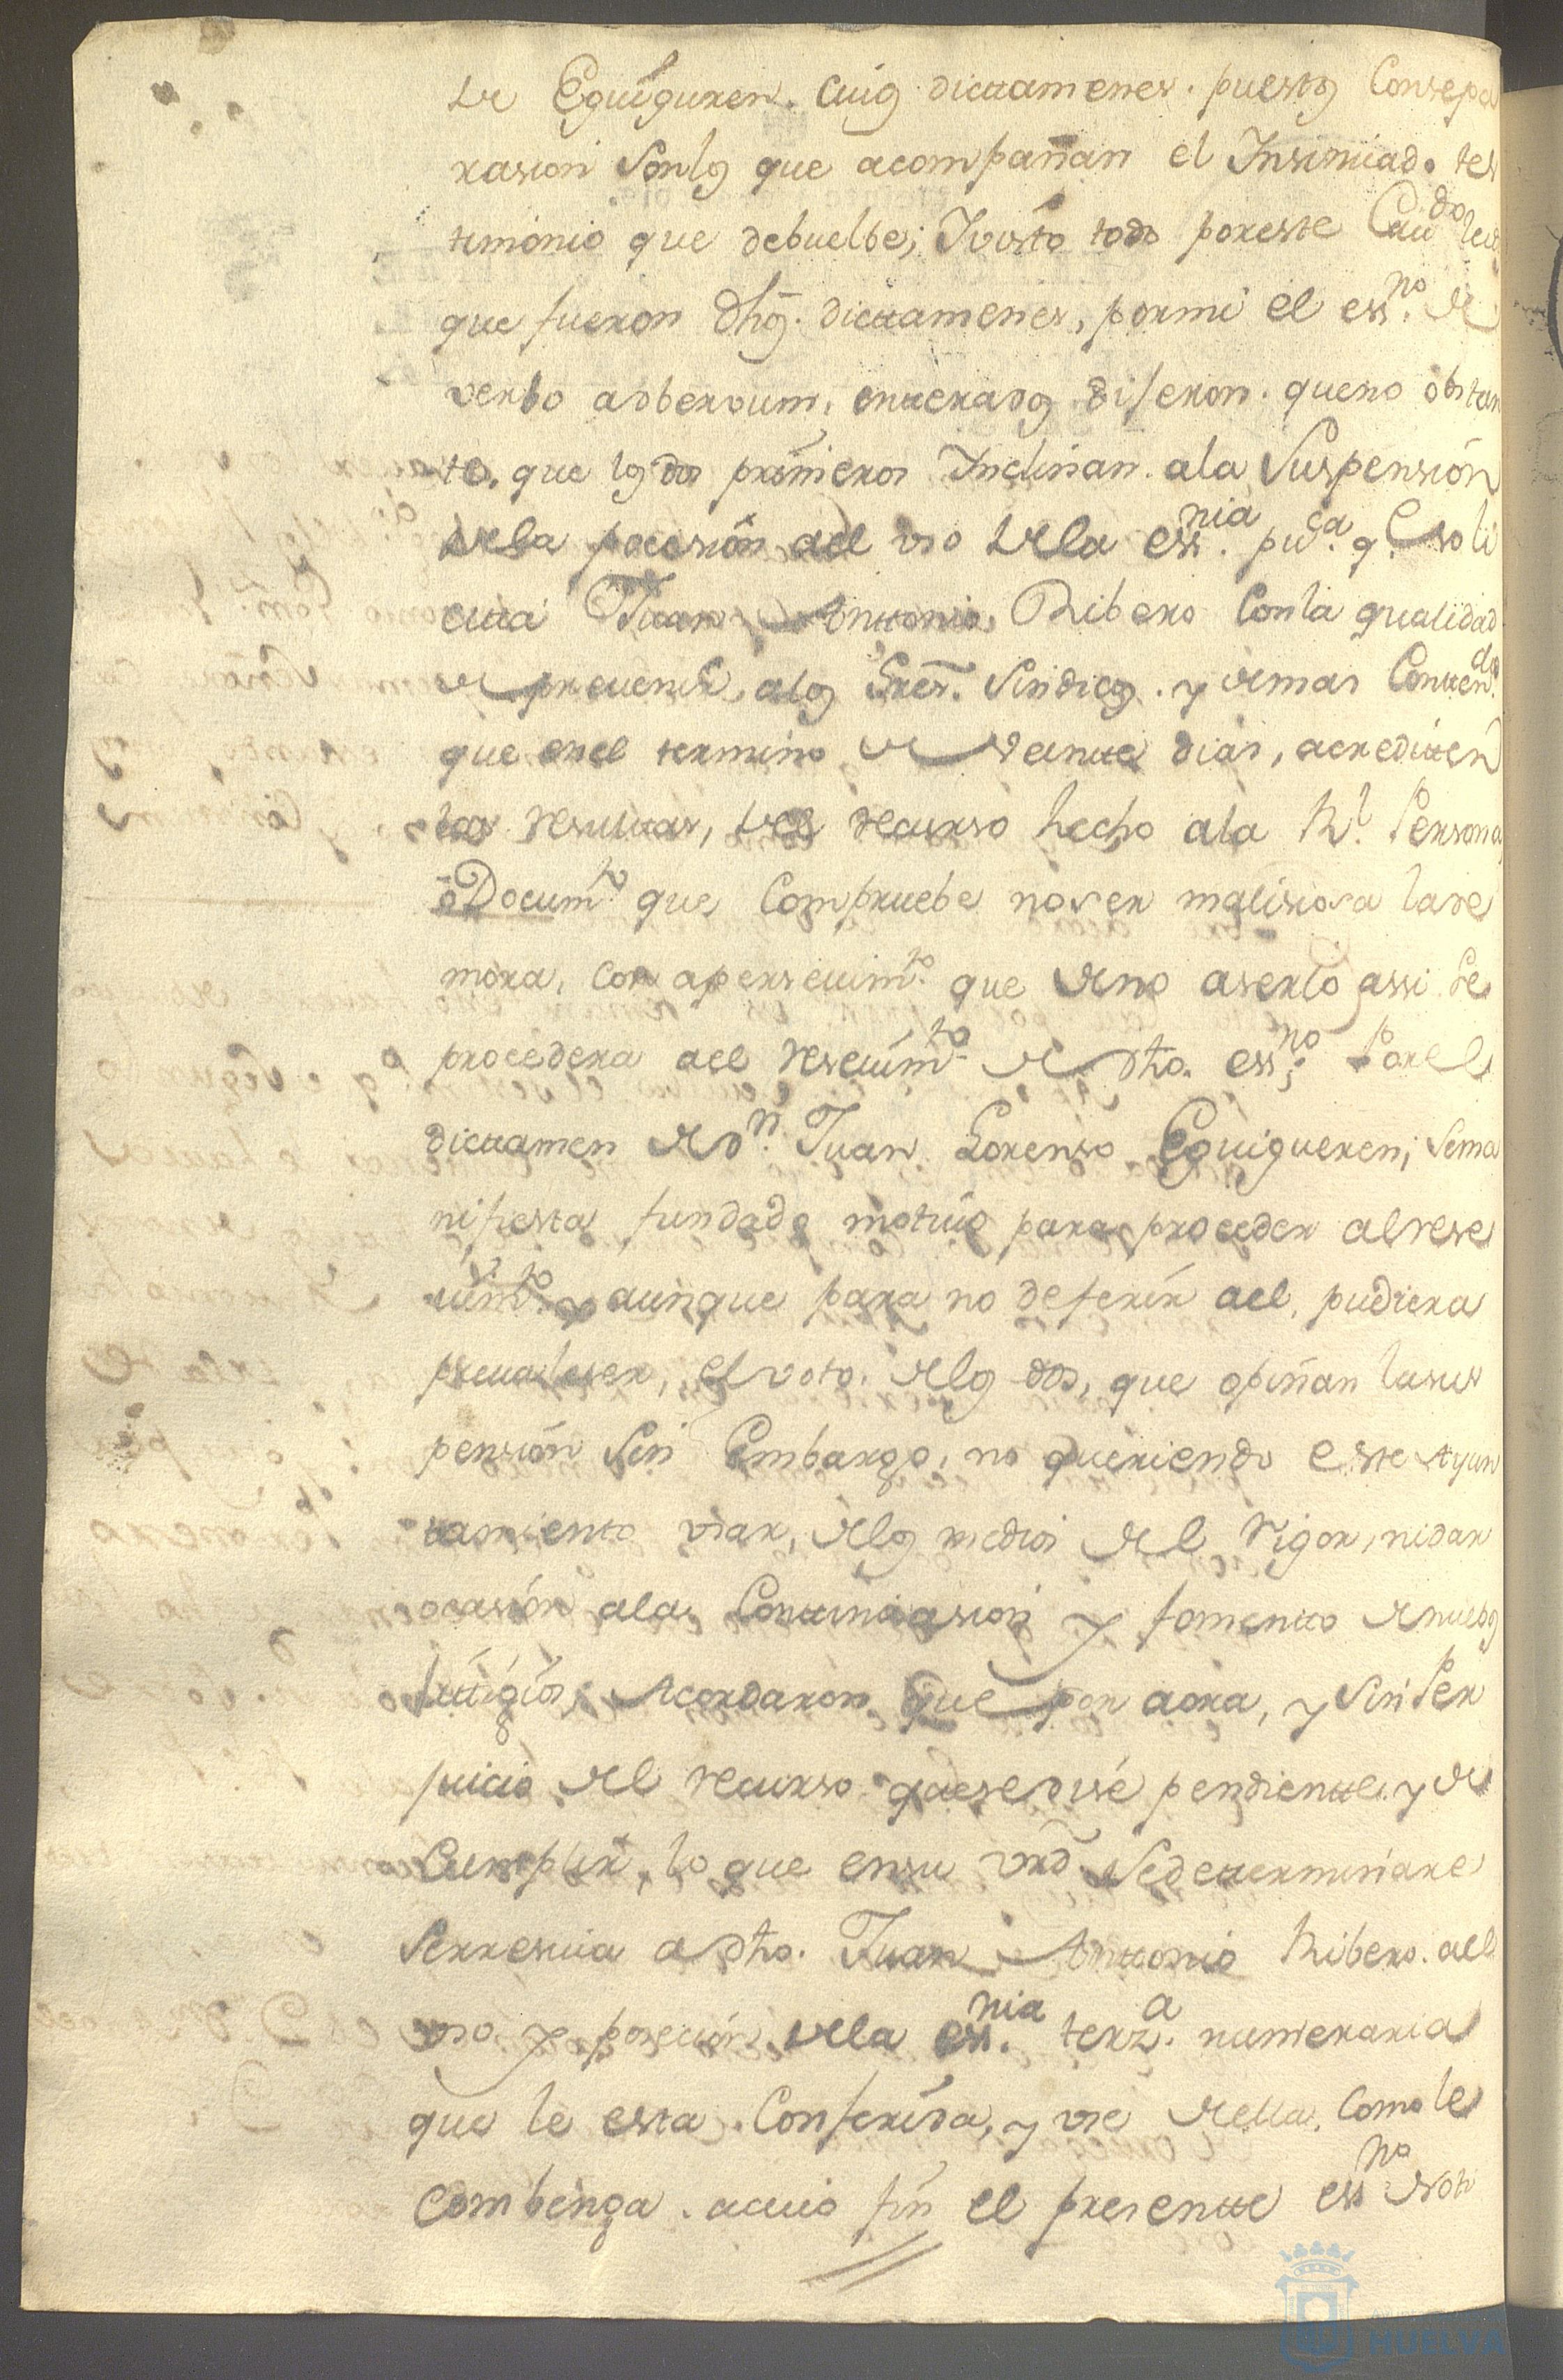 de Eguiguren. Cuios dictamenes. puestos Consepa
rasion Sonlos que acompañan el Insinuado. tes
timonio que debuelbe; Ivisto todo poreste Cau.do leid
que fueron dhos. dictamenes, pormi el ess.no de
verbo adbervum, enterados dijeron. queno obstan
te, que los dos primeros Inclinan. ala Suspensión
dela pocesión ael vso dela ess.nia pu.ca q.e soli
citta Juan Anttonio Ribero Conla qualidad
de prevenir, alos Sres. Sindicos. y demas Conten.dos
que enel termino de veintte dias, acreditten
las resultas, del recurso hecho ala Rl. Persona
ò Docum.to que Compruebe noser malisiosa lade
mora, con apersevim.to que deno aserlo assi Se
procedera ael resevim.to de dho. ess.no; Porel
dictamen de dn. Juan Lorenso Eguigueren; Sema
nifiesta fundado motivo para proceder alrese
uim.to y aunque para no deferir ael, pudiera
prevaleser, el voto. delos dos, que opinan lasus
pensión Sin Embargo, no queriendo este Ayun
tamiento vsar, delos medios del Rigor, nidar
ocasión ala Conttinuasion y fomentto denuebos
littigios, Acordaron que por aora, y Sin Per
juicio del recurso quesedise pendientte. y de
Cumplir, lo que ensu vrd. Sedetterminare
Serresiua a dho. Juan Anttonio Ribero. ael
vso y poseción. dela ess.nia terz.a numeraria
que le esta Conferida, y vse della. Como le
Combenga. acuio fin el presentte ess.no Noti
HUELVA